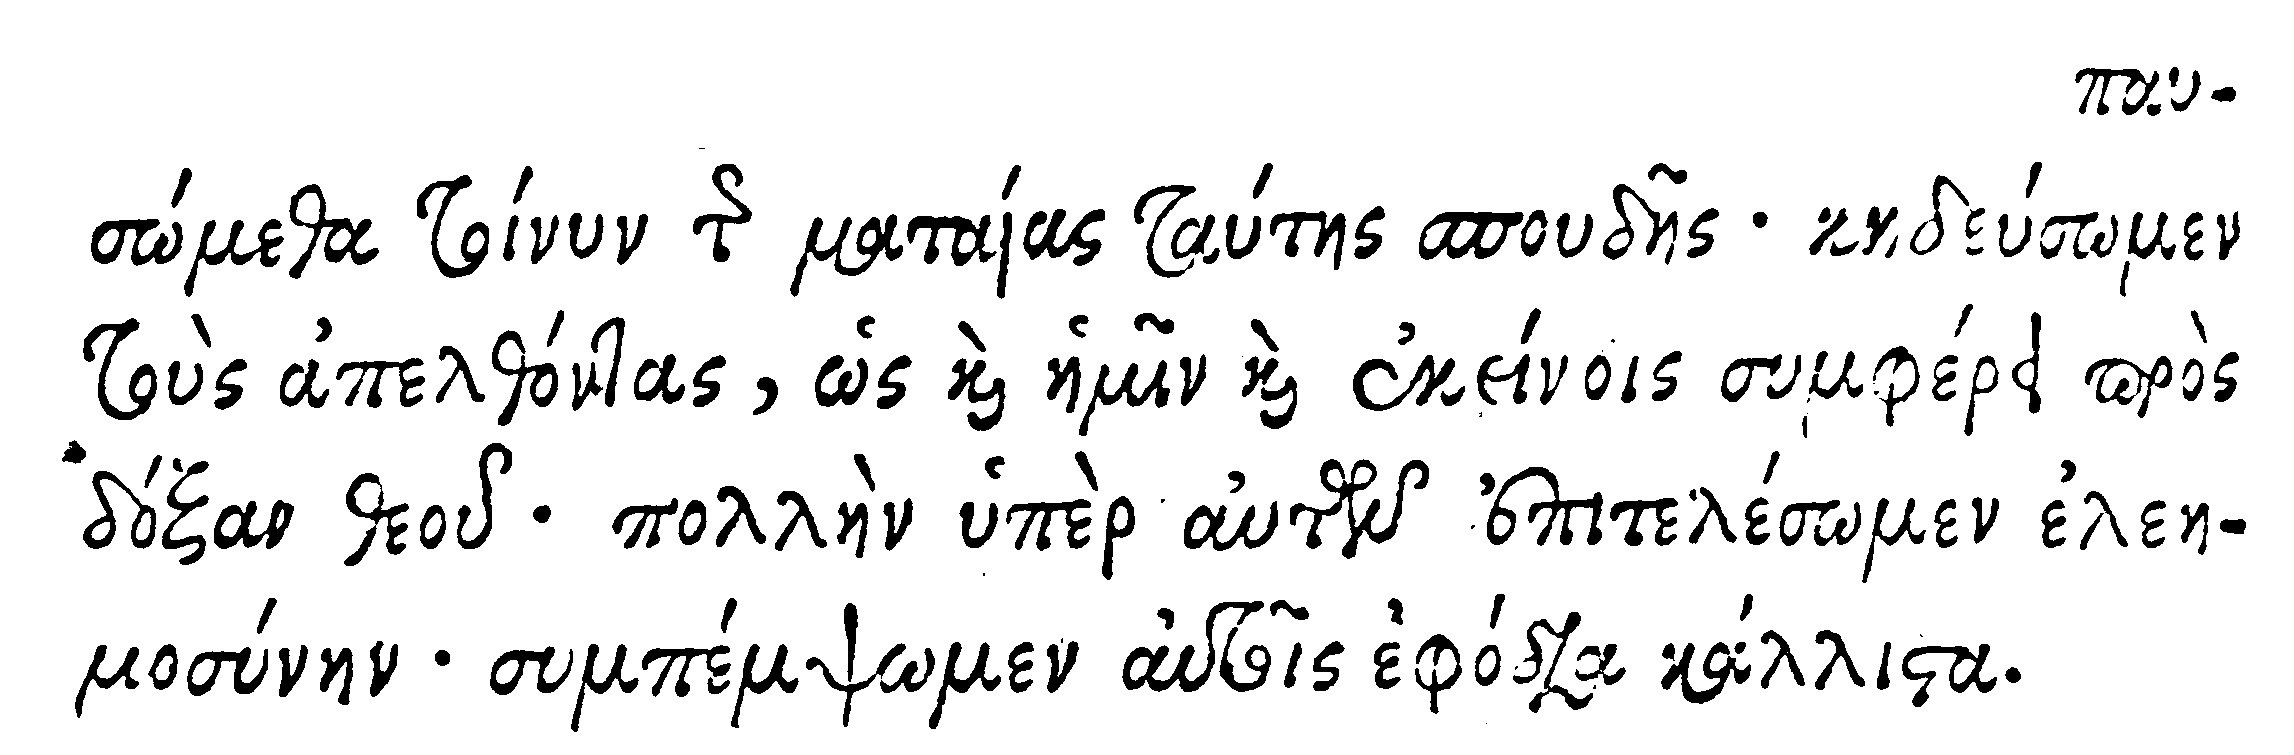 παυ-
σώμεθα τοίνυν τῆς ματαίας ταύτης σπουδῆς· κηδεύσωμεν
τοὺς ἀπελθόντας, ὡς καὶ ἡμῖν καὶ ἐκείνοις συμφέρει πρὸς
δόξαν θεοῦ· πολλὴν ὑπὲρ αὐτῶν ἐπιτελέσωμεν ἐλεη-
μοσύνην· συμπέμψωμεν αὐτοῖς ἐφόδια κάλλιστα.